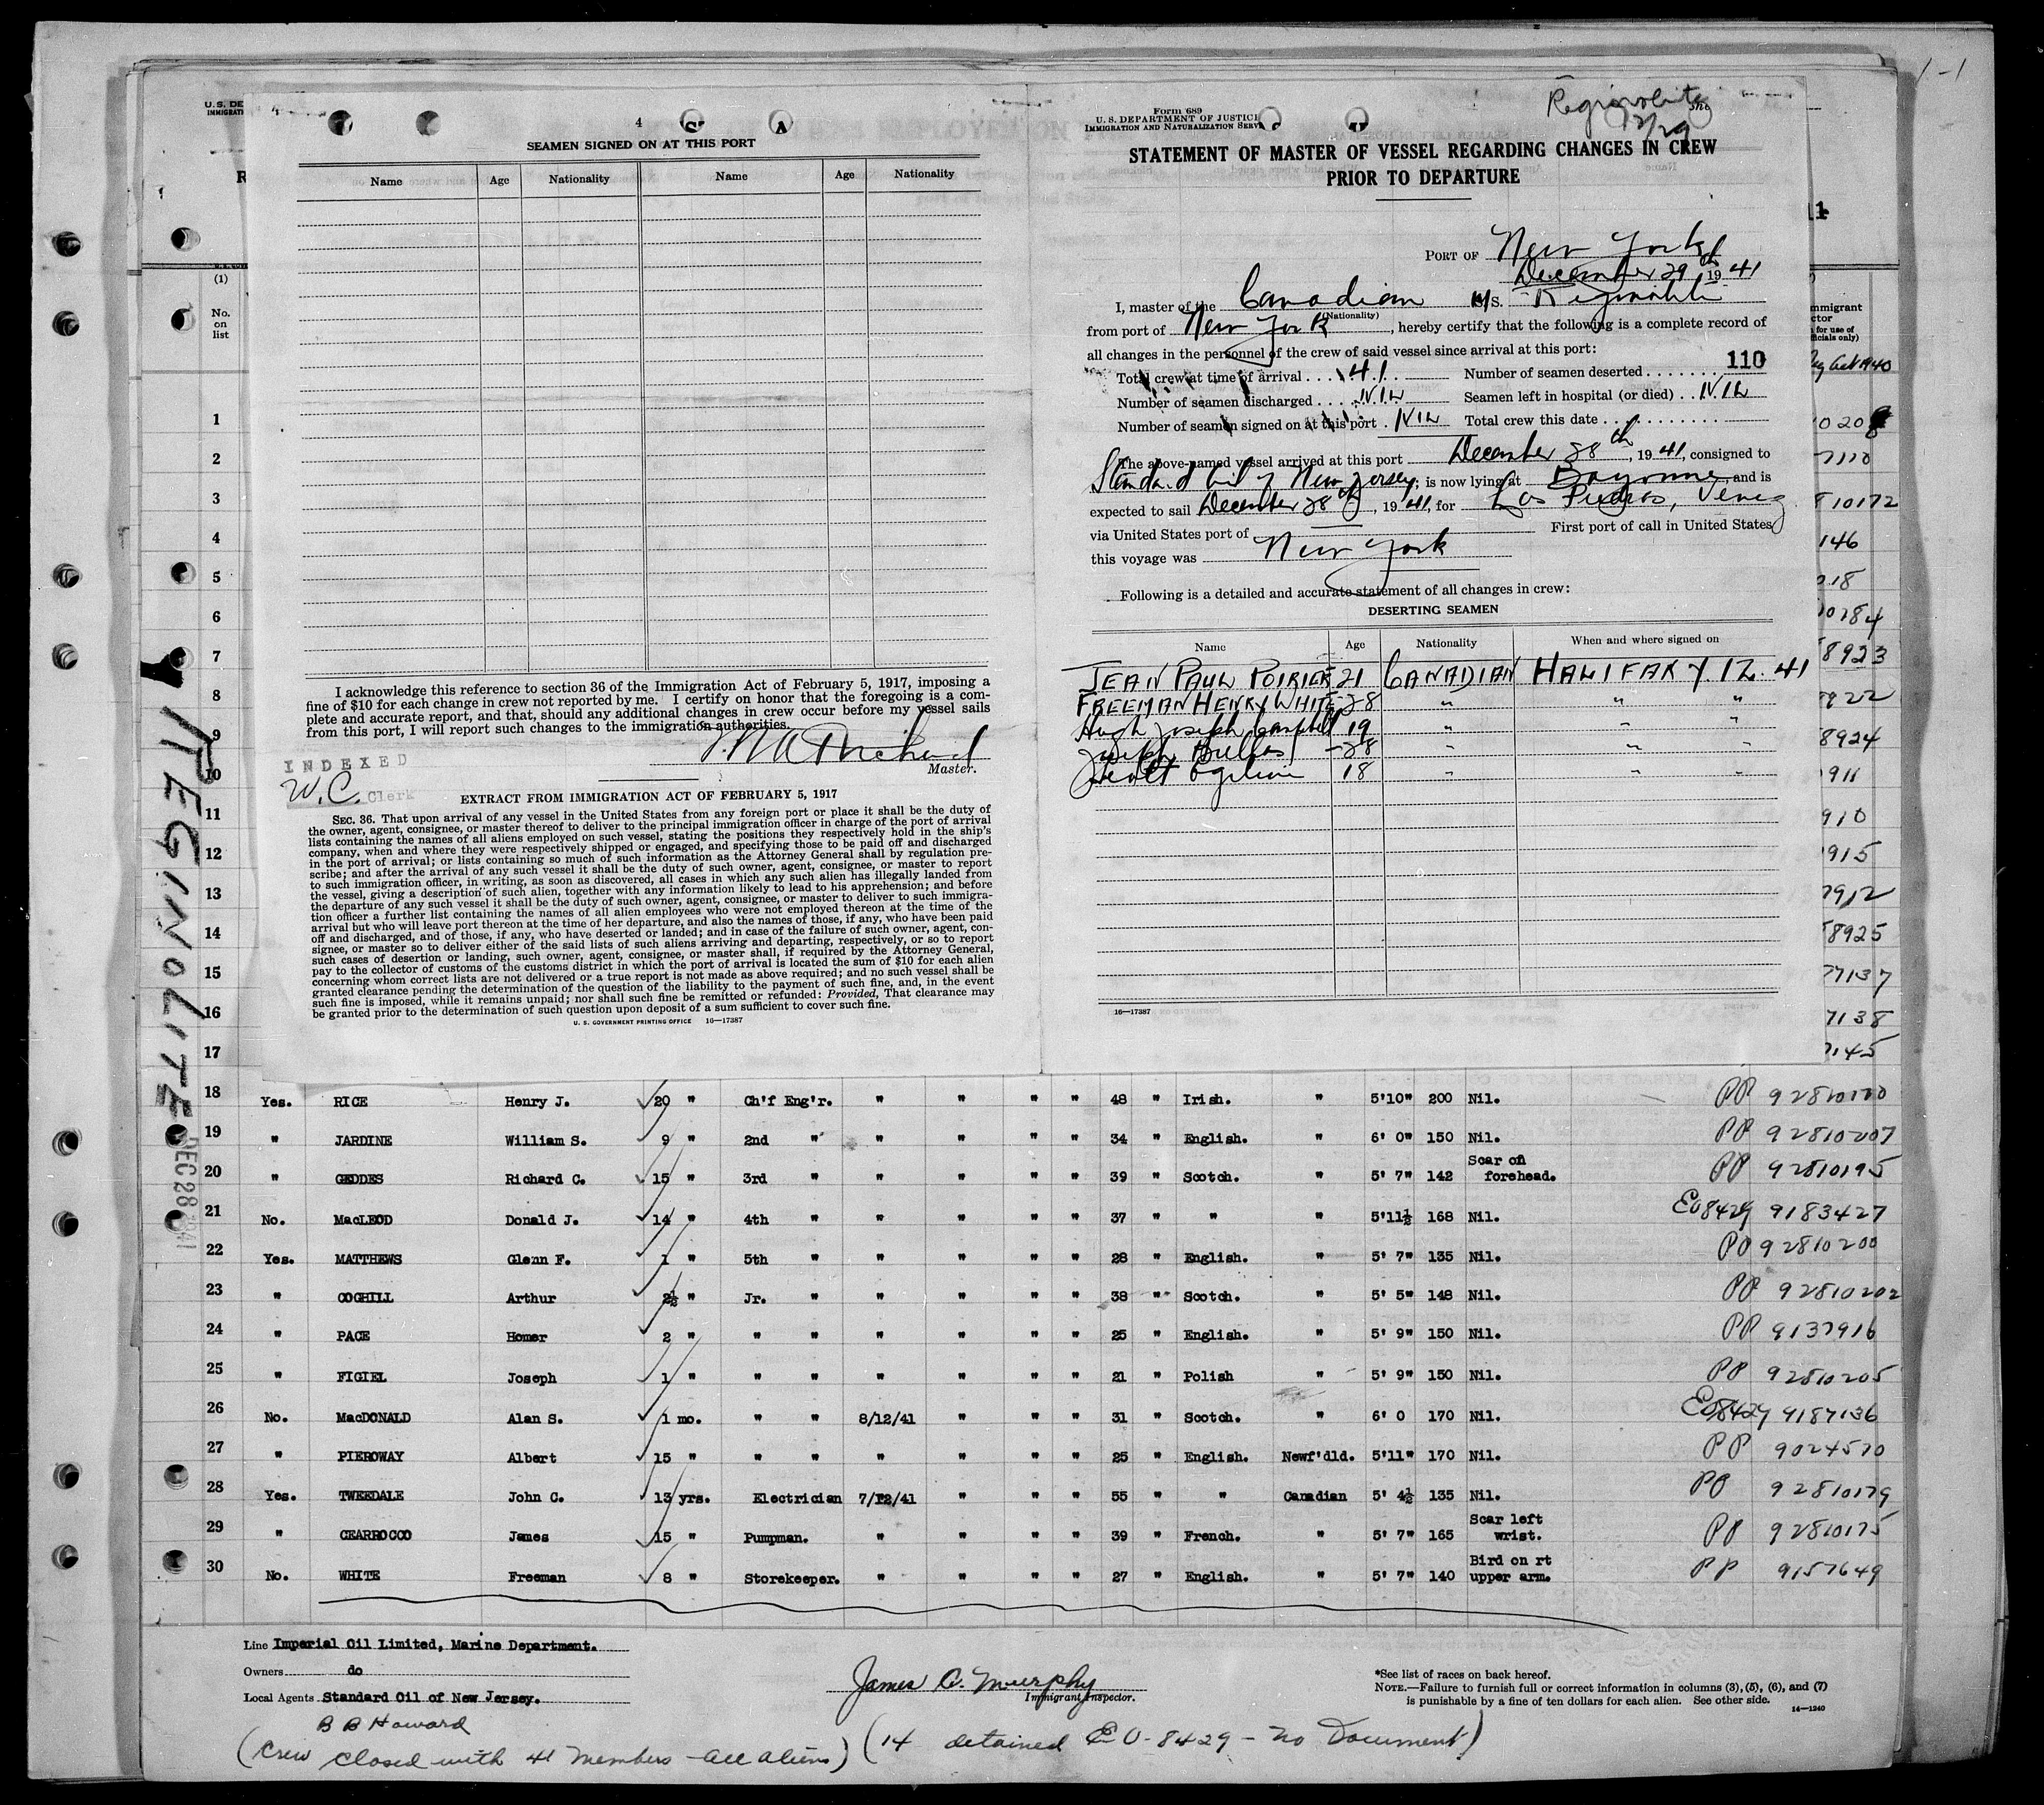 1-1
U.S. DE
IMMIGRAT
R
(1)
No.
on
list
1
2
3
4
5
6
7
8
9
10
11
12
13
14
15
16
17
REGINOLITE
DEC 28 1941
4
SEAMEN SIGNED ON AT THIS PORT
Name Age Nationality Name Age Nationality
I acknowledge this reference to section 36 of the Immigration Act of February 5, 1917, imposing a
fine of $10 for each change in crew not reported by me. I certify on honor that the foregoing is a com-
plete and accurate report, and that, should any additional changes in crew occur before my vessel sails
from this port, I will report such changes to the immigration authorities.
Master.
INDEXED
W.C. Clerk
EXTRACT FROM IMMIGRATION ACT OF FEBRUARY 5, 1917
SEC. 36. That upon arrival of any vessel in the United States from any foreign port or place it shall be the duty of
the owner, agent, consignee, or master thereof to deliver to the principal immigration officer in charge of the port of arrival
lists containing the names of all aliens employed on such vessel, stating the positions they respectively hold in the ship's
company, when and where they were respectively shipped or engaged, and specifying those to be paid off and discharged
in the port of arrival; or lists containing so much of such information as the Attorney General shall by regulation pre-
scribe; and after the arrival of any such vessel it shall be the duty of such owner, agent, consignee, or master to report
to such immigration officer, in writing, as soon as discovered, all cases in which any such alien has illegally landed from
the vessel, giving a description of such alien, together with any information likely to lead to his apprehension; and before
the departure of any such vessel it shall be the duty of such owner, agent, consignee, or master to deliver to such immigra-
tion officer a further list containing the names of all alien employees who were not employed thereon at the time of the
arrival but who will leave port thereon at the time of her departure, and also the names of those, if any, who have been paid
off and discharged, and of those, if any, who have deserted or landed; and in case of the failure of such owner, agent, con-
signee, or master so to deliver either of the said lists of such aliens arriving and departing, respectively, or so to report
such cases of desertion or landing, such owner, agent, consignee, or master shall, if required by the Attorney General,
pay to the collector of customs of the customs district in which the port of arrival is located the sum of $10 for each alien
concerning whom correct lists are not delivered or a true report is not made as above required; and no such vessel shall be
granted clearance pending the determination of the question of the liability to the payment of such fine, and, in the event
such fine is imposed, while it remains unpaid; nor shall such fine be remitted or refunded: Provided, That clearance may
be granted prior to the determination of such question upon deposit of a sum sufficient to cover such fine.
U. S. GOVERNMENT PRINTING OFFICE 16—17387
Form 689
U. S. DEPARTMENT OF JUSTICE
IMMIGRATION AND NATURALIZATION SERV
Reginolite
12/29
STATEMENT OF MASTER OF VESSEL REGARDING CHANGES IN CREW
PRIOR TO DEPARTURE
PORT OF New York
December 29th 1941
I, master of the Canadian M/S. Reginolite
(Nationality)
from port of New York, hereby certify that the following is a complete record of
all changes in the personnel of the crew of said vessel since arrival at this port:
110
Total crew at time of arrival 41 Number of seamen deserted
Number of seamen discharged NIL Seamen left in hospital (or died) NIL
Number of seamen signed on at this port NIL Total crew this date
The above-named vessel arrived at this port December 28th, 1941, consigned to
Standard Oil of New Jersey; is now lying at Bayonne and is
expected to sail December 28th, 1941, for Las Piedras, Venez
via United States port of First port of call in United States
this voyage was New York
Following is a detailed and accurate statement of all changes in crew:
DESERTING SEAMEN
Name Age Nationality When and where signed on
JEAN PAUL POIRIER 21 CANADIAN HALIFAX 7.12.41
FREEMAN HENRY WHITE 28 " " "
Hugh Joseph Campbell 19 " " "
Joseph 28 " " "
Scott Ogilvie 18 " " "
16—17387
11
mmigrant
ctor
for use of
ficials only)
1940
0208
7110
810172
146
018
10184
8923
8922
8924
911
910
915
7912
8925
77137
7138
7145
18 Yes. RICE Henry J. 20 " Ch'f Eng'r. " " " " 48 " Irish. " 5'10" 200 Nil. PP 92810170
19 " JARDINE William S. 9 " 2nd " " " " " 34 " English. " 6' 0" 150 Nil. PP 92810207
20 " GEDDES Richard C. 15 " 3rd " " " " " 39 " Scotch. " 5' 7" 142 Scar on forehead. PP 92810195
21 No. MacLEOD Donald J. 14 " 4th " " " " " 37 " " " 5'11½ 168 Nil. EO8429 9183427
22 Yes. MATTHEWS Glenn F. 1 " 5th " " " " " 28 " English. " 5' 7" 135 Nil. PP 92810200
23 " COGHILL Arthur 2½ " Jr. " " " " " 38 " Scotch. " 5' 5" 148 Nil. PP 92810202
24 " PACE Homer 2 " " " " " " " 25 " English. " 5' 9" 150 Nil. PP 9137916
25 " FIGIEL Joseph 1 " " " " " " " 21 " Polish " 5' 9" 150 Nil. PP 92810205
26 No. MacDONALD Alan S. 1 mo. " " 8/12/41 " " " 31 " Scotch. " 6' 0 170 Nil. EO8429 9187136
27 " PIEROWAY Albert 15 " " " " " " " 25 " English. Newf'dld. 5'11" 170 Nil. PP 9024570
28 Yes. TWEEDALE John C. 13 yrs. Electrician 7/12/41 " " " 55 " " Canadian 5' 4½ 135 Nil. PP 92810179
29 " CEARROCCO James 15 " Pumpman. " " " " 39 " French. " 5' 7" 165 Scar left wrist. PP 92810175
30 No. WHITE Freeman 8 " Storekeeper. " " " " 27 " English. " 5' 7" 140 Bird on rt upper arm. PP 9157649
Line Imperial Oil Limited, Marine Department.
Owners do
Local Agents Standard Oil of New Jersey.
B B Howard
James C. Murphy
Immigrant Inspector.
*See list of races on back hereof.
NOTE.—Failure to furnish full or correct information in columns (3), (5), (6), and (7)
is punishable by a fine of ten dollars for each alien. See other side.
14—1240
(Crew closed with 41 members - all aliens) (14 detained EO-8429 - No Document)